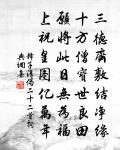 三德廣敷結淨緣
十方僧寶世良田
願將此日無為福
上祝皇圖億萬年
釋子淳偈二十二首